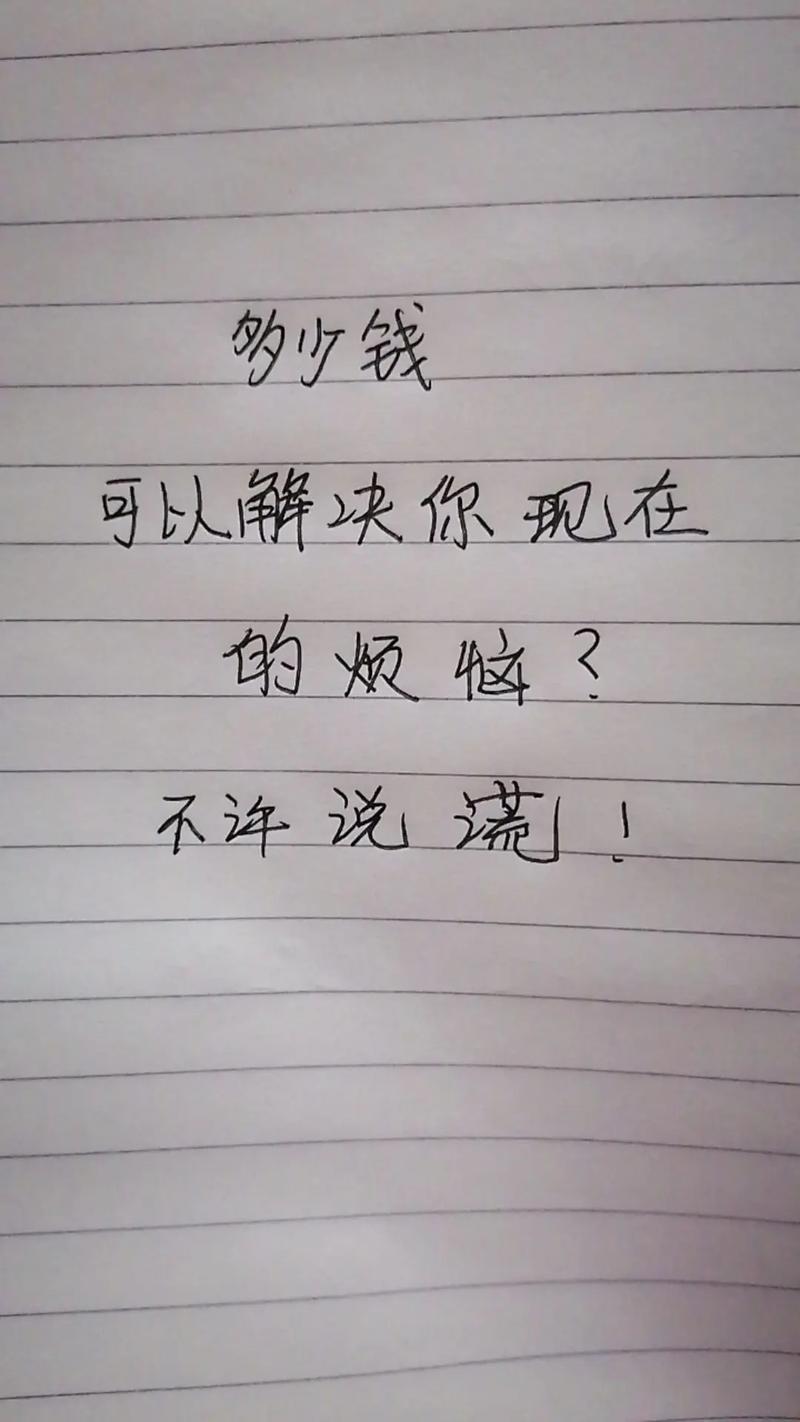 多少钱
可以解决你现在
的烦恼？
不许说谎！